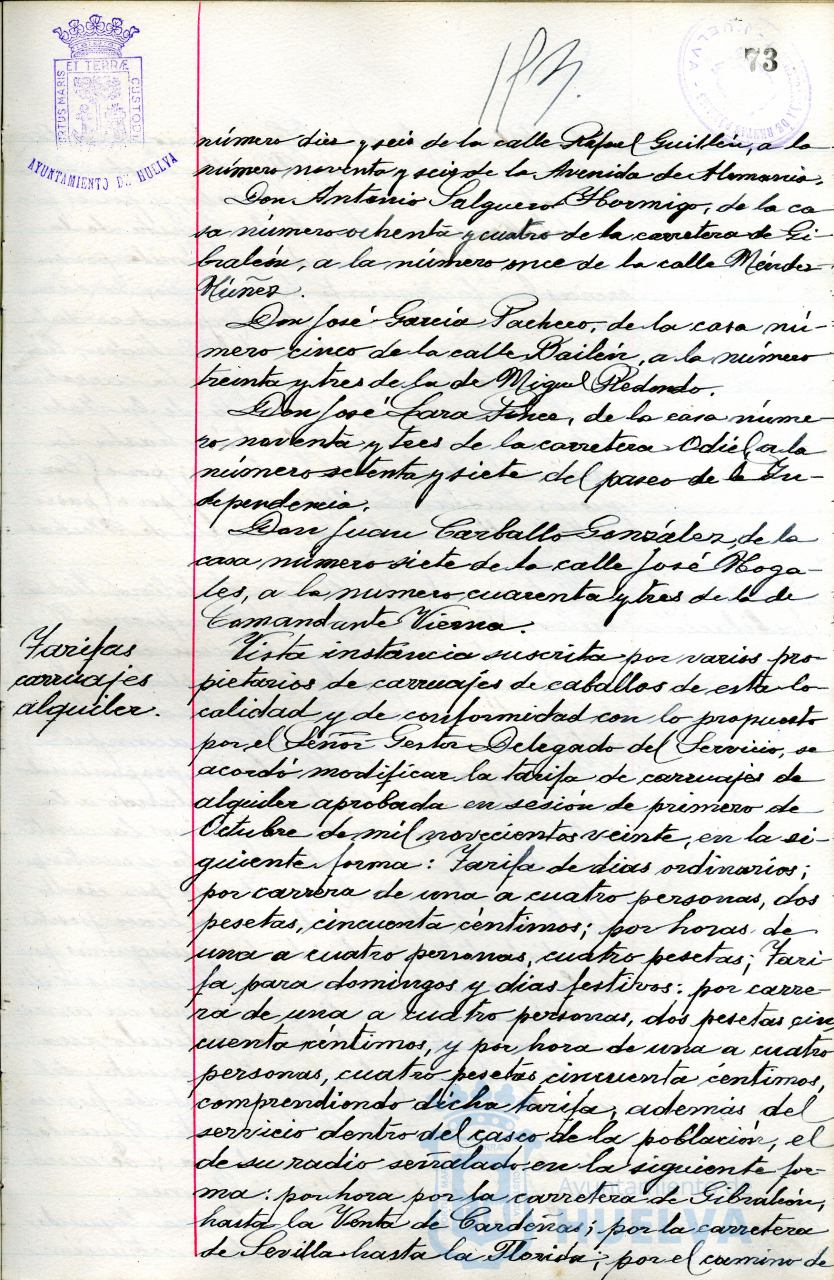 ET TERRÆ
CUSTODI
AYUNTAMIENTO DE HUELVA
73
número diez y seis de la calle Rafael Guillén, a la
número noventa y seis de la Avenida de Alemania.
Don Antonio Salguero Hormigo, de la ca
sa número ochenta y cuatro de la carretera de Gi-
braleón, a la número once de la calle Méndez
Núñez.
Don José García Pacheco, de la casa nú-
mero cinco de la calle Bailén, a la número
treinta y tres de la de Miguel Redondo.
Don José Lara, de la casa núme-
ro, noventa y tres de la carretera Odiel, a la
número setenta y siete del paseo de la In-
dependencia.
Don Juan Carballo González, de la
casa número siete de la calle José Noga-
les, a la numero cuarenta y tres de la de
Comandante Vierna.
Tarifas
carruajes
alquiler.
Vista instancia suscrita por varios pro-
pietarios de carruajes de caballos de esta lo-
calidad y de conformidad con lo propuesto
por el Señor Gestor Delegado del Servicio, se
acordó modificar la tarifa de carruajes de
alquiler aprobada en sesión de primero de
Octubre de mil novecientos veinte, en la si-
guiente forma: Tarifa de dias ordinarios;
por carrera de una a cuatro personas, dos
pesetas, cincuenta céntimos; por horas de
una a cuatro personas, cuatro pesetas; Tari-
fa para domingos y dias festivos: por carre-
ra de una a cuatro personas, dos pesetas cin
cuenta céntimos, y por hora de una a cuatro
personas, cuatro pesetas cincuenta céntimos,
comprendiendo dicha tarifa, además del
servicio dentro del casco de la población, el
de su radio señalado en la siguiente for-
ma: por hora por la carretera de Gibraleón,
hasta la Venta de Cardeñas; por la carretera
de Sevilla hasta la Florida; por el camino de
Ayuntamiento de
HUELVA